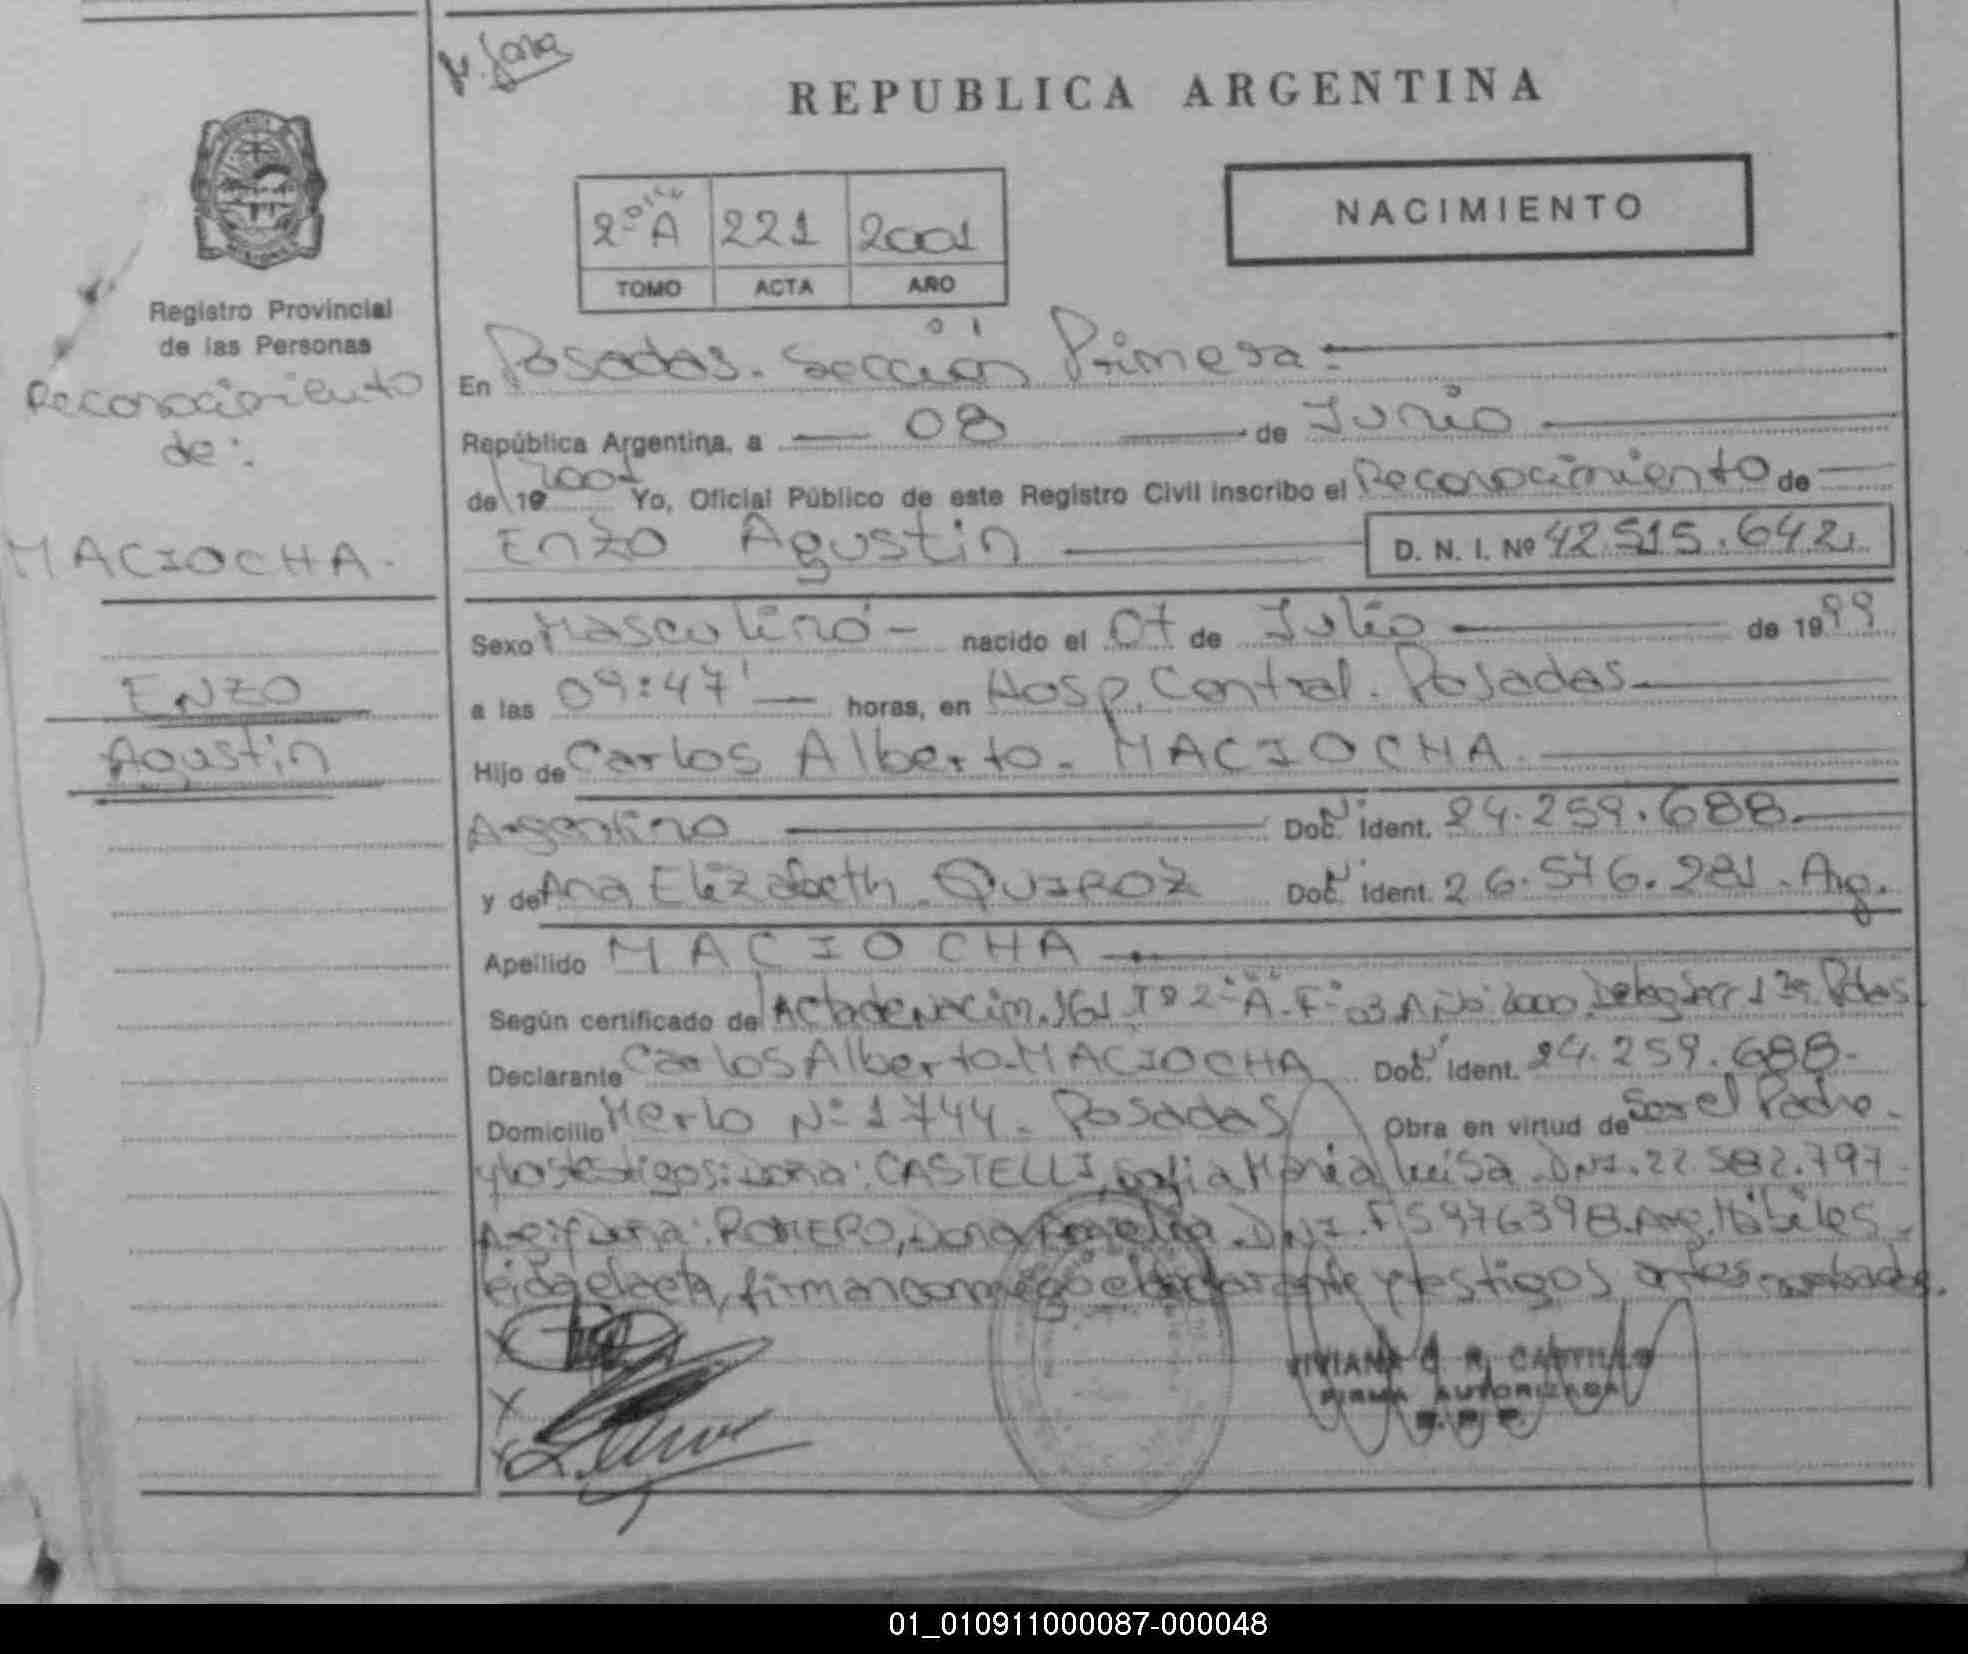 REPUBLICA ARGENTINA
2º A 221 2001
TOMO ACTA AÑO
NACIMIENTO
Registro Provincial
de las Personas
Reconocimiento
de:
MACIOCHA.
ENZO
Agustin
En Posadas. Sección Primera.
República Argentina, a 08 de Junio
de 19 2001 Yo, Oficial Público de este Registro Civil inscribo el Reconocimiento de
Enzo Agustin D. N. I. Nº 42.515.642
Sexo Masculino - nacido el 07 de Julio de 1999
a las 09:47' horas, en Hosp. Central. Posadas
Hijo de Carlos Alberto. MACIOCHA
Argentino Doc. Ident. 24.259.688.
y de Ana Elizabeth. QUIROZ Doc. Ident. 26.576.281. Arg.
Apellido MACIOCHA
Según certificado de Acta de Nacim. 161 Tº 2º A. Fº 03 Año 2000. Deleg Secc 1ra Pdas
Declarante Carlos Alberto. MACIOCHA Doc. Ident. 24.259.688.
Domicilio Merlo Nº 1744. Posadas Obra en virtud de Ser el Padre.
y los testigos: Doña: CASTELLI, Sofia Maria Luisa. DNI. 22.582.797.
Doña: ROMERO, DNI. F 5976398. Arg. Hábiles.
Leida el acta, firman conmigo el declarante y testigos antes nombrados.
VIVIANA C. R. CASTILLO
FIRMA AUTORIZADA
R. P. P.
01_010911000087-000048